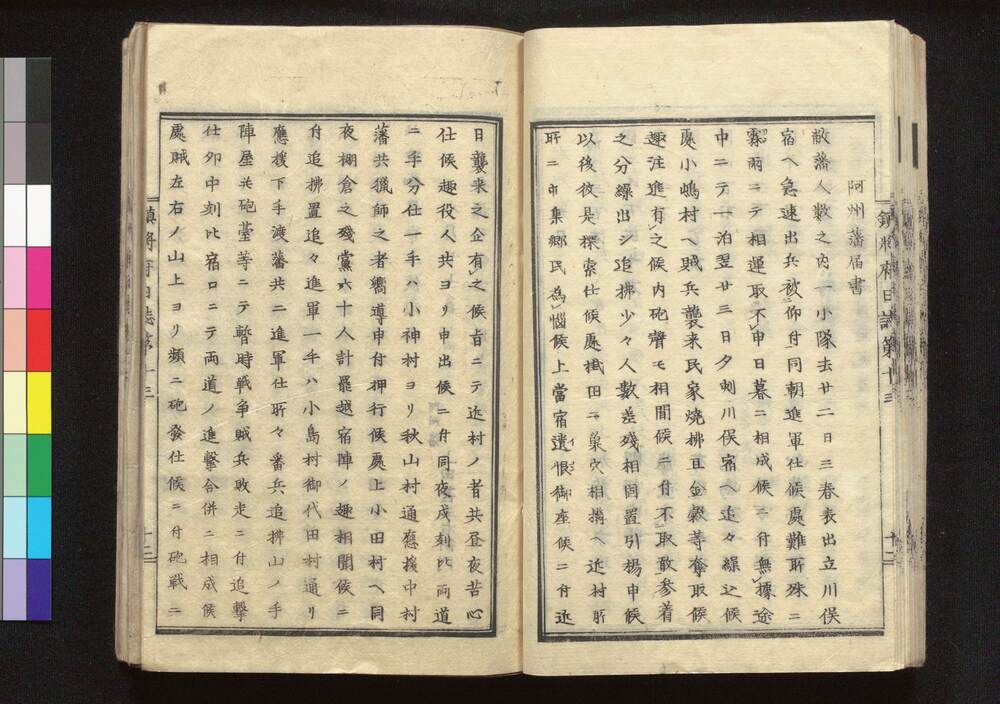 阿州藩届書
敝藩人數之内一小隊去廿二日三春表出立川俣
宿ヘ急速出兵被仰付同朝進軍仕候處難所殊ニ
霧雨ニテ相運取不申日暮ニ相成候ニ付無據途
中ニテ一泊翌廿三日夕刻川俣宿ヘ追々繰込候
處小嶋村ヘ賊兵襲来民家焼拂且金糓等奪取候
趣注進有之候内砲聲モ相聞候ニ付不取敢参着
之分繰出シ追拂少々人數差残相固置引揚申候
以後彼是探索仕候處掛田ニ巣穴相搆ヘ近村所
所ニ市集郷民為惱候上當宿遺恨御座候ニ付近
鎮将府日誌第十三
十二
日襲来之企有之候音ニテ近村ノ者共昼夜苦心
仕候趣役人共ヨリ申出候ニ付同夜戌刻比両道
ニ手分仕一手ハ小神村ヨリ秋山村通應援中村
藩共猟師之者嚮導申付押行候處上小田村ヘ同
夜棚倉之殘黨六十人計罷越宿陣ノ趣相聞候ニ
付追拂置追々進軍一手ハ小島村御代田村通リ
應援下手渡藩共ニ進軍仕所々番兵追拂山ノ手
陣屋并砲䑓等ニテ暫時戦争賊兵敗走ニ付追撃
仕卯中刻比宿口ニテ両道ノ進撃合併ニ相成候
處賊左右ノ山上ヨリ頻ニ砲發仕候ニ付砲戦ニ
鎮将府日誌第十三